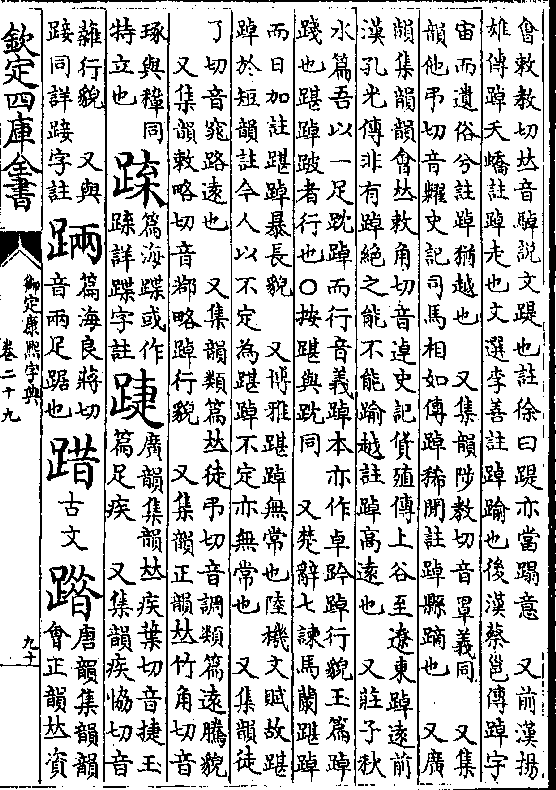 會敕教切𠀤音踔說文踶也註徐曰踶亦當蹋意　又前漢揚
雄傳踔夭蟜註踔走也文選李善註踔踰也後漢蔡邕傳踔宇
宙而遺俗兮註踔猶越也　又集韻陟教切音罩義同　又集
韻他弔切音糶史記司馬相如傳踔稀閒註踔縣擿也　又廣
韻集韻韻會𠀤敕角切音逴史記貨殖傳上谷至遼東踔遠前
漢孔光傳非有踔絶之能不能踰越註踔高遠也　又莊子秋
水篇吾以一足趻踔而行音義踔本亦作卓趻踔行貌玉篇踔
踐也踸踔跛者行也○按踸與趻同　又楚辭七諫馬蘭踸踔
而日加註踸踔暴長貌　又博雅踸踔無常也陸機文賦故踸
踔於短韻註今人以不定為踸踔不定亦無常也　又集韻徒
了切音窕路遠也　又集韻類篇𠀤徒弔切音調類篇遠騰貌
　又集韻敕略切音𨞪略踔行貌　又集韻正韻𠀤竹角切音
琢與穛同
特立也
䟽
篇海蹀或作
䟽詳蹀字註
踕
廣韻集韻𠀤疾葉切音捷玉
篇足疾　又集韻疾協切音
蘸行貌　又與
踥同詳踥字註
䠃
篇海良蔣切
音兩足踞也
踖
古文
䠙
唐韻集韻韻
會正韻𠀤資
欽定四庫全書
御定康熙字典
卷二十九
九十